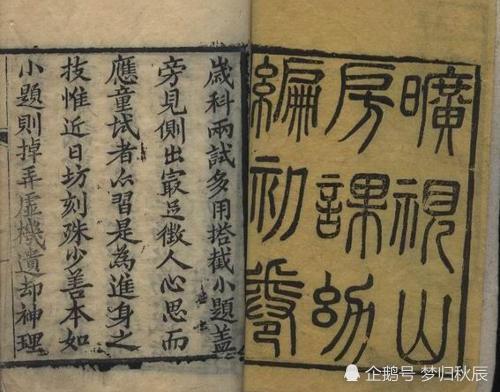 曠視山
房課幼
編初
歲科兩試多用搭截小題蓋
旁見側出㝡足徵人心思而
應童試者必習是為進身之
技惟近日坊刻殊少善本如
小題則掉弄虛機遺却神理
企鹅号 梦归秋辰